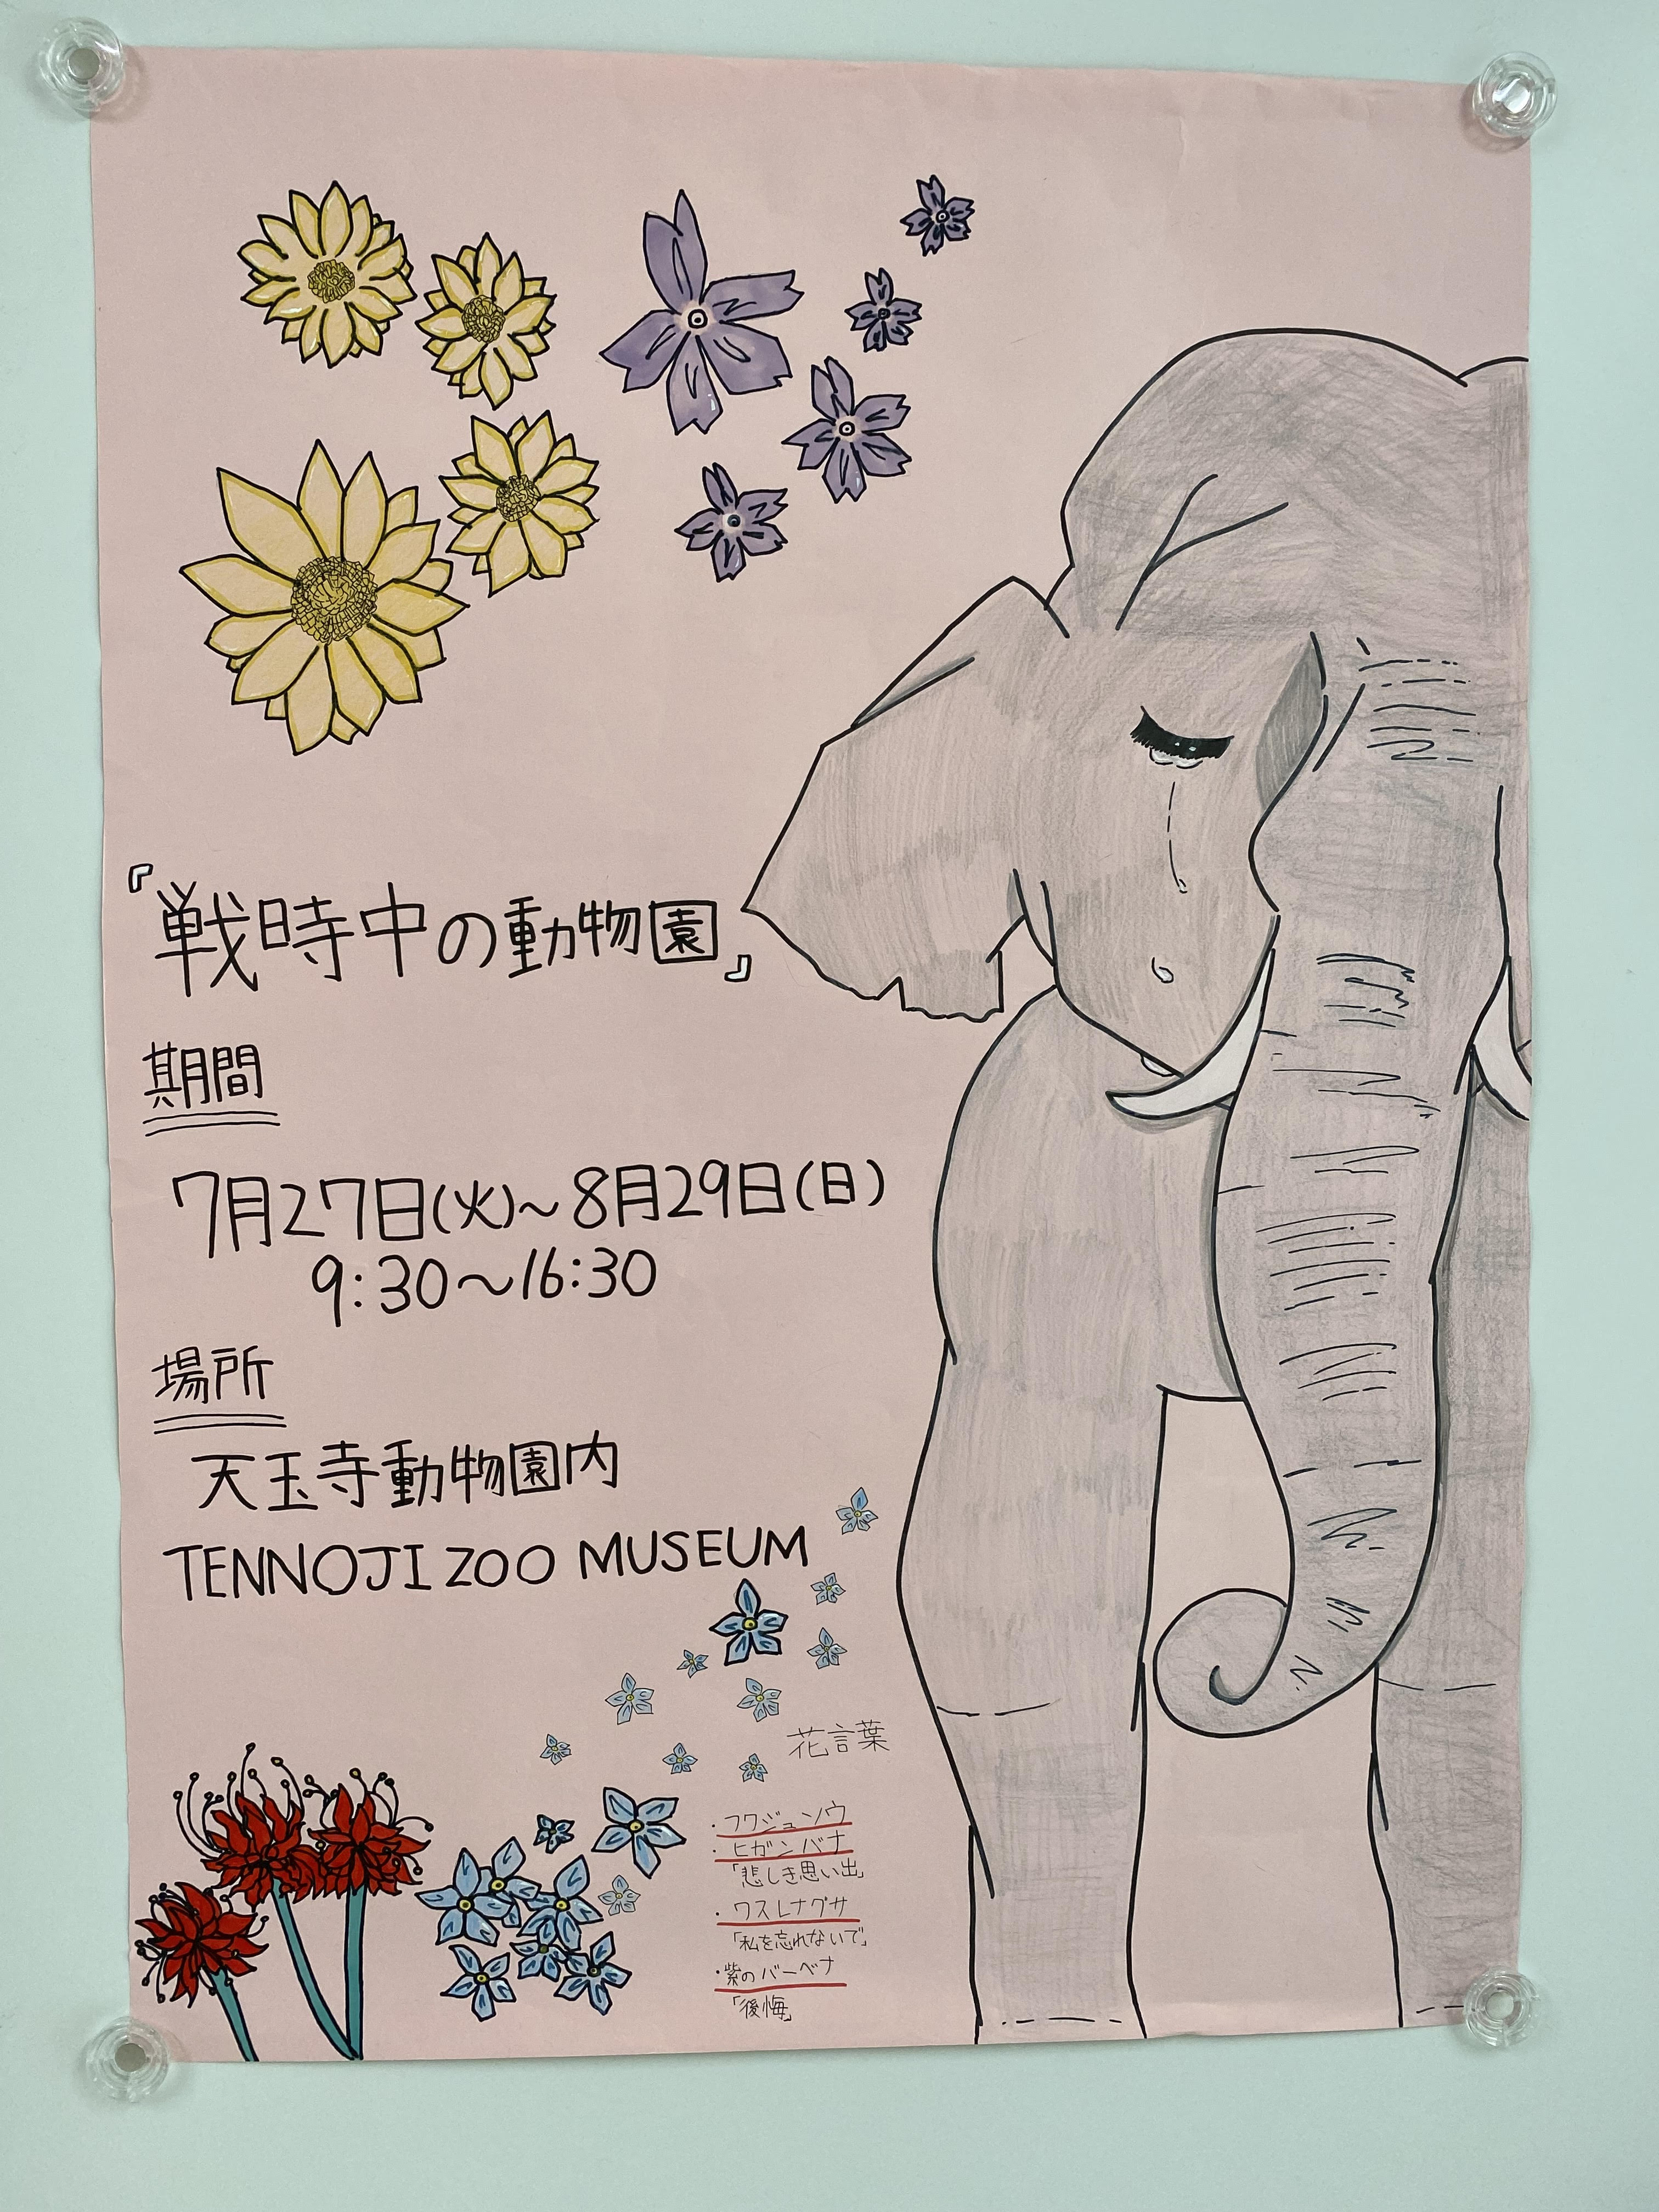 『戦時中の動物園』
期間
7月27日(火)~8月29日(日)
9:30~16:30
場所
天玉寺動物園内
TENNOJI ZOO MUSEUM
花言葉
・フクジュソウ
・ヒガンバナ
「悲しき思い出」
・ワスレナグサ
「私を忘れないで」
・紫のバーベナ
「後悔」